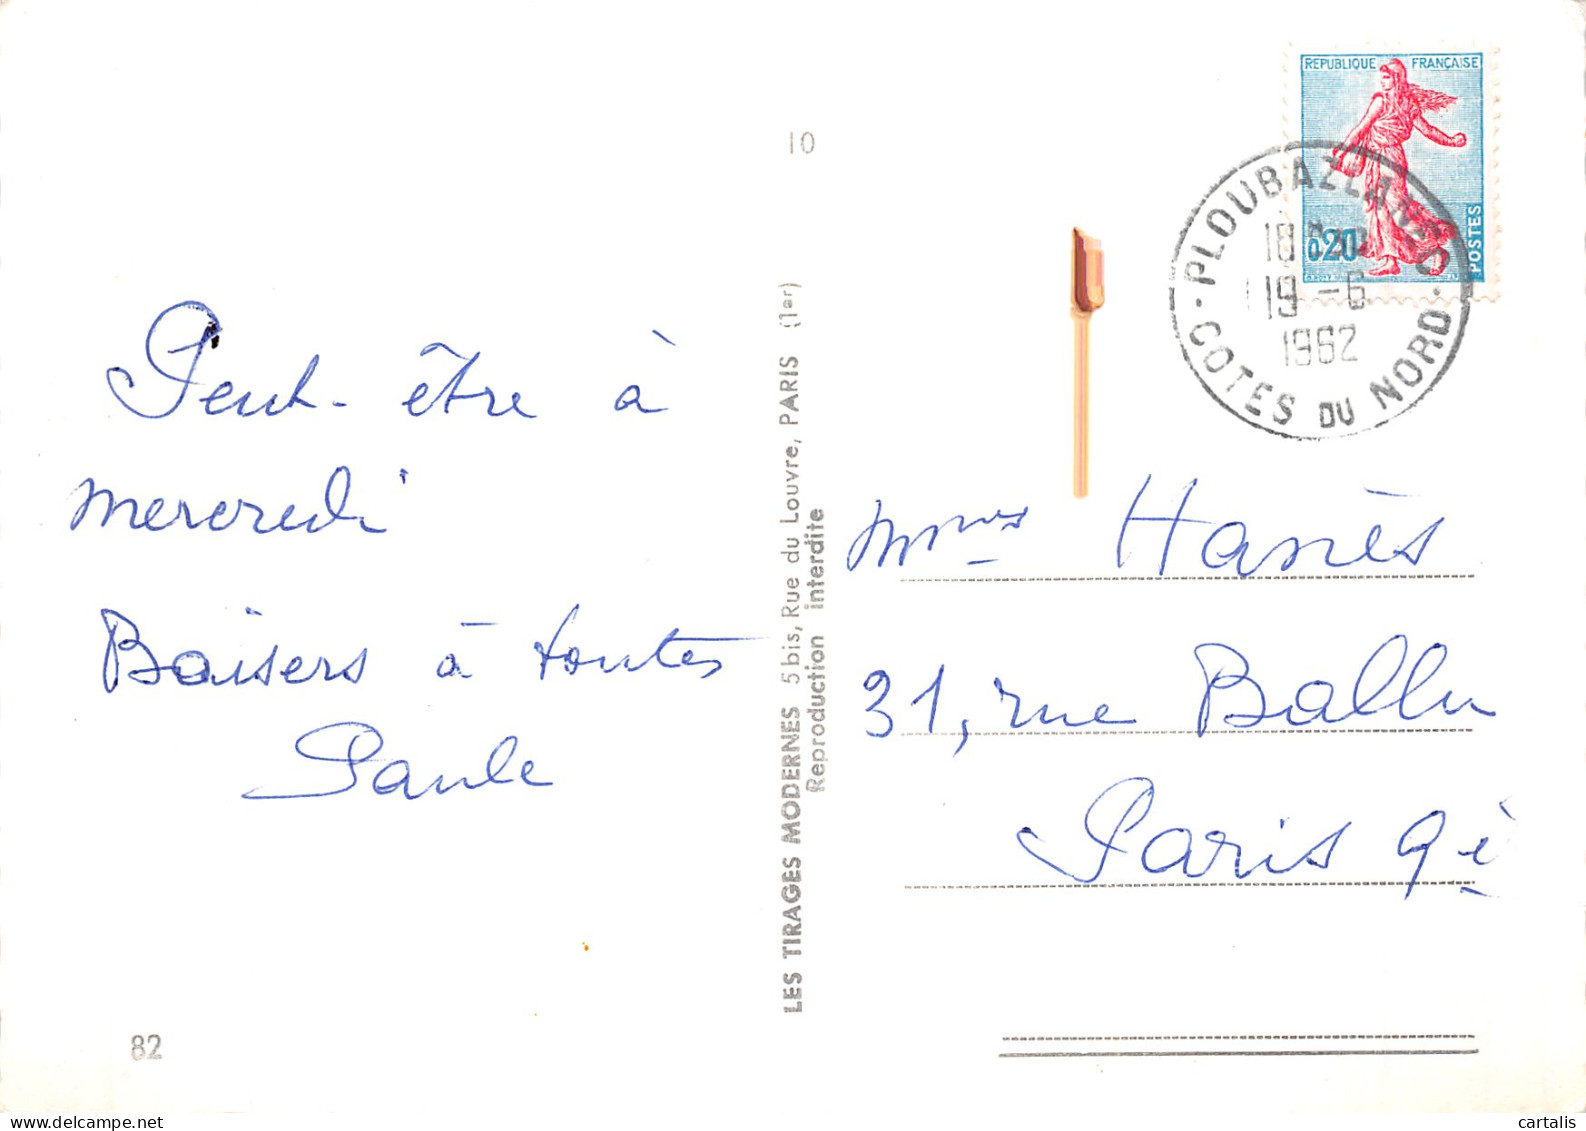 10
REPUBLIQUE FRANÇAISE
0,20
POSTES
PLOUBAZLANEC
18H30
19 -6
1962
COTES DU NORD
Peut-être à
mercredi
Baisers à toutes
Paule
LES TIRAGES MODERNES 5 bis, Rue du Louvre, PARIS (1er)
Reproduction interdite
Mmes Hanès
31, rue Ballu
Paris 9è
82
delcampe.net
cartalis